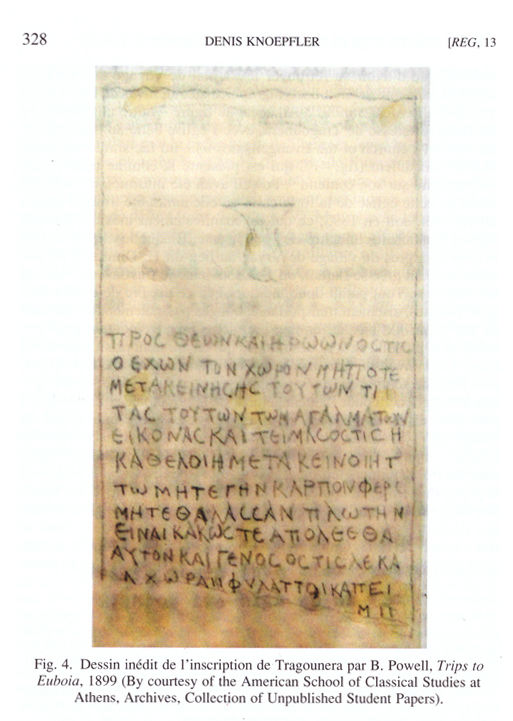 328
DENIS KNOEPFLER
[REG, 13
ΠΡΟϹ ΘΕΩΝ ΚΑΙ ΗΡΩΩΝ ΟϹΤΙϹ
Ο ΕΧΩΝ ΤΟΝ ΧΩΡΟΝ ΜΗΠΟΤΕ
ΜΕΤΑΚΕΙΝΗϹΗϹ ΤΟΥΤΩΝ ΤΙ
ΤΑϹ ΤΟΥΤΩΝ ΤΩΝ ΑΓΑΛΜΑΤΩΝ
ΕΙΚΟΝΑϹ ΚΑΙ ΤΕΙΜΑϹ ΟϹΤΙϹ Η
ΚΑΘΕΛΟΙΗ ΜΕΤΑΚΕΙΝΟΙΗ Τ
ΤΩ ΜΗΤΕ ΓΗΝ ΚΑΡΠΟΝ ΦΕΡΕ
ΜΗΤΕ ΘΑΛΑϹϹΑΝ ΠΛΩΤΗΝ
ΕΙΝΑΙ ΚΑΚΩϹ ΤΕ ΑΠΟΛΕϹΘΑ
ΑΥΤΟΝ ΚΑΙ ΓΕΝΟϹ ΟϹΤΙϹ ΔΕ ΚΑ
Λ ΧΩΡΑΝ ΦΥΛΑΤΤΟΙ ΚΑΠΕΙ
ΜΠ
Fig. 4. Dessin inédit de l'inscription de Tragounera par B. Powell, Trips to
Euboia, 1899 (By courtesy of the American School of Classical Studies at
Athens, Archives, Collection of Unpublished Student Papers).